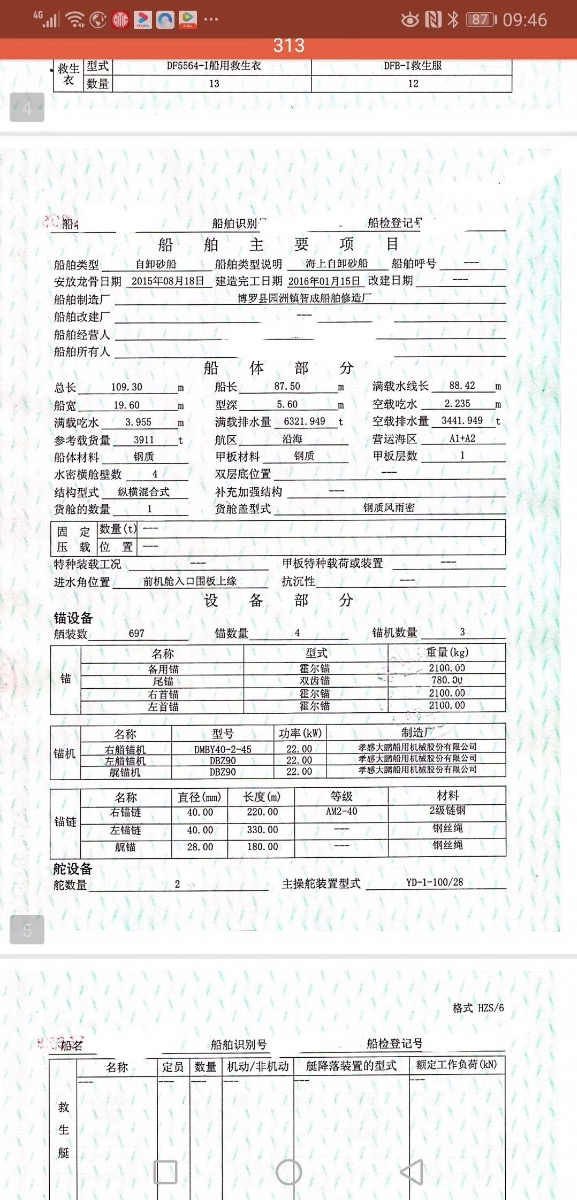 4G 87 09:46
313
救生衣 型式 DF5564-I船用救生衣 DFB-I救生服
数量 13 12
4
船名 船舶识别 船检登记号
船舶主要项目
船舶类型 自卸砂船 船舶类型说明 海上自卸砂船 船舶呼号 ---
安放龙骨日期 2015年08月18日 建造完工日期 2016年01月15日 改建日期 ---
船舶制造厂 博罗县园洲镇智成船舶修造厂
船舶改建厂 ---
船舶经营人
船舶所有人
船体部分
总长 109.30 m 船长 87.50 m 满载水线长 88.42 m
船宽 19.60 m 型深 5.60 m 空载吃水 2.235 m
满载吃水 3.955 m 满载排水量 6321.949 t 空载排水量 3441.949 t
参考载货量 3911 t 航区 沿海 营运海区 A1+A2
船体材料 钢质 甲板材料 钢质 甲板层数 1
水密横舱壁数 4 双层底位置 ---
结构型式 纵横混合式 补充加强结构 ---
货舱的数量 1 货舱盖型式 钢质风雨密
固定压载 数量(t) ---
位置 ---
特种装载工况 --- 甲板特种载荷或装置 ---
进水角位置 前机舱入口围板上缘 抗沉性 ---
设备部分
锚设备
舾装数 697 锚数量 4 锚机数量 3
锚 名称 型式 重量(kg)
备用锚 霍尔锚 2100.00
尾锚 双齿锚 780.00
右首锚 霍尔锚 2100.00
左首锚 霍尔锚 2100.00
锚机 名称 型号 功率(kW) 制造厂
右艏锚机 DMBY40-2-45 22.00 孝感大鹏船用机械股份有限公司
左艏锚机 DBZ90 22.00 孝感大鹏船用机械股份有限公司
艉锚机 DBZ90 22.00 孝感大鹏船用机械股份有限公司
锚链 名称 直径(mm) 长度(m) 等级 材料
右锚链 40.00 220.00 AM2-40 2级链钢
左锚链 40.00 330.00 --- 钢丝绳
艉锚 28.00 180.00 --- 钢丝绳
舵设备
舵数量 2 主操舵装置型式 YD-1-100/28
5
格式 HZS/6
船名 船舶识别号 船检登记号
救生艇 名称 定员 数量 机动/非机动 艇降落装置的型式 额定工作负荷(kN)
--- --- --- --- --- ---